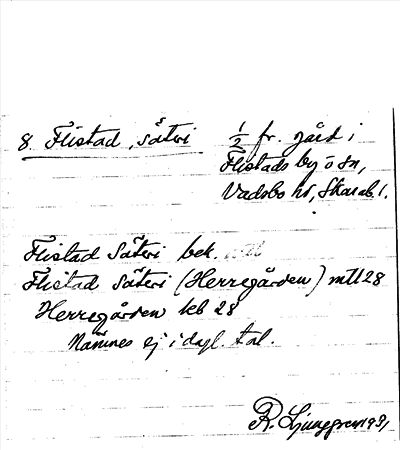 8. Flistad, säteri
1/2 fr. gård i
Flistads by o sn,
Vadsbo hd, Skarab. l.
Flistad Säteri bek.
Flistad säteri (Herregården) mtl 28
Herregården kb 28
Nämnes ej i dagl. tal.
R. Ljunggren 1931